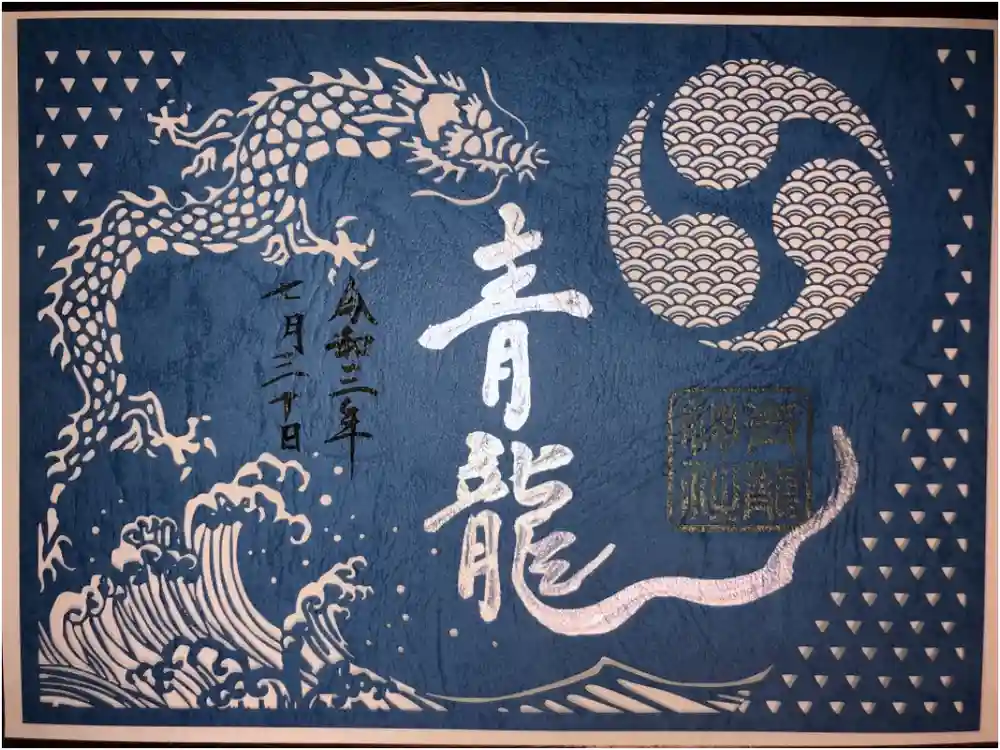 青龍
令和三年
七月三十日